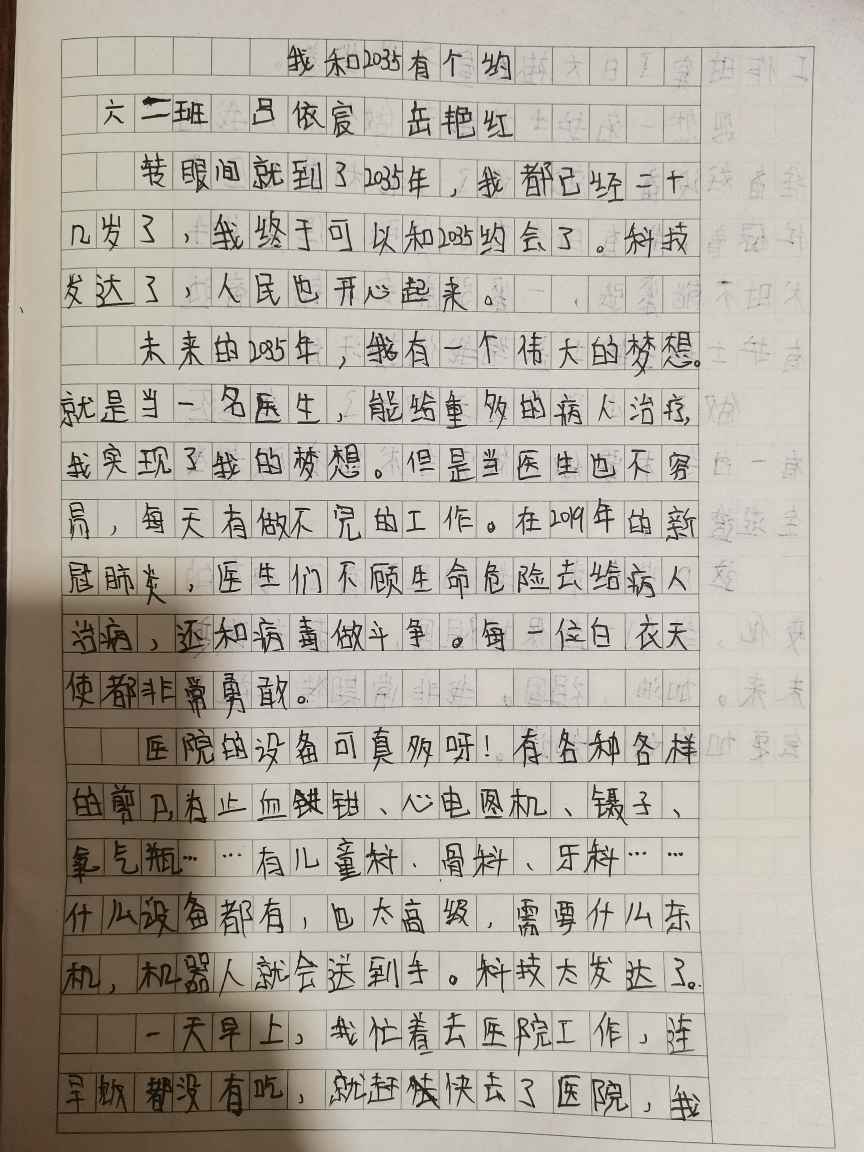 我和2035有个约
六二班 吕依宸 岳艳红
转眼间就到了2035年，我都已经二十
几岁了，我终于可以和2035约会了。科技
发达了，人民也开心起来。
未来的2035年，我有一个伟大的梦想。
就是当一名医生，能给重多的病人治疗，
我实现了我的梦想。但是当医生也不容
易，每天有做不完的工作。在2019年的新
冠肺炎，医生们不顾生命危险去给病人
治病，还和病毒做斗争。每一位白衣天
使都非常勇敢。
医院的设备可真多呀！有各种各样
的剪刀有止血钳、心电图机、镊子、
氧气瓶……有儿童科、骨科、牙科……
什么设备都有，也太高级，需要什么东
机，机器人就会送到手。科技太发达了。
一天早上，我忙着去医院工作，连
早饭都没有吃，就赶快去了医院，我